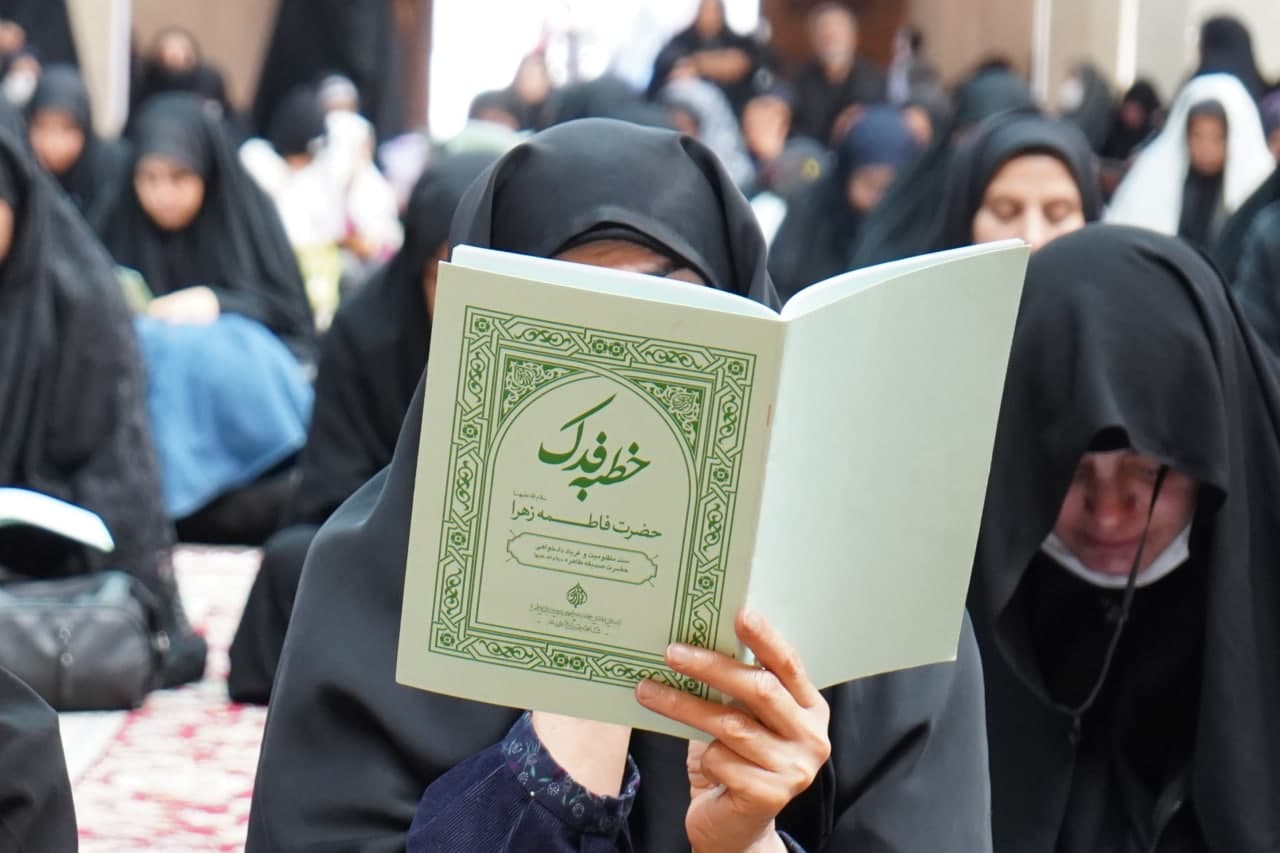 خطبه فدک
سلام الله علیها
حضرت فاطمه زهرا
سند مظلومیت و فریاد دادخواهی
حضرت صدیقه طاهره سلام الله علیها